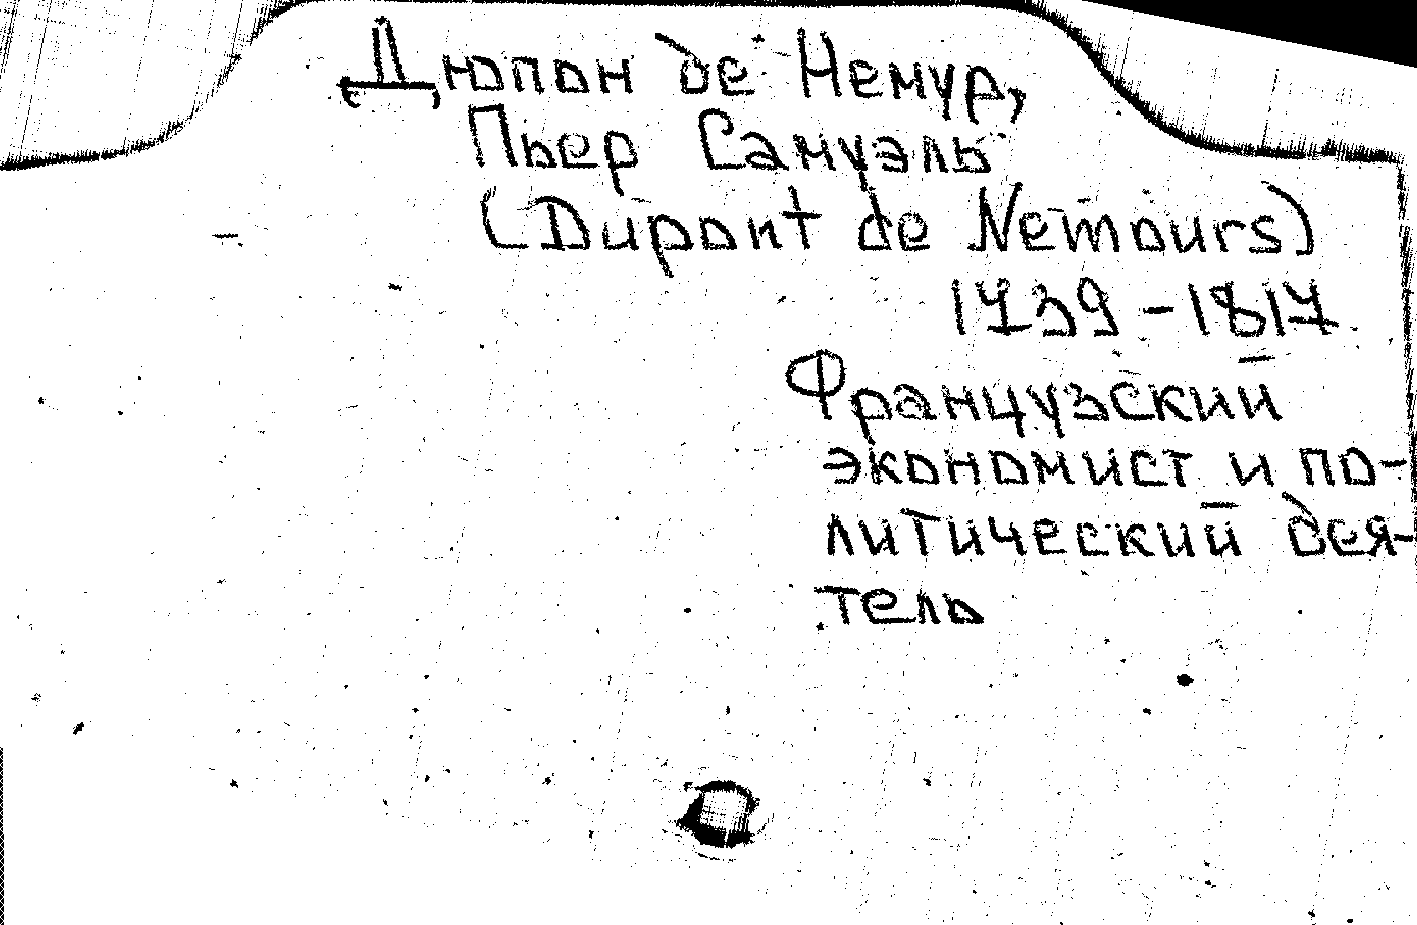 Дюпон де Немур,
Пьер Самуэль
(Dupont de Nemours)
1739-1817
Французский
экономист и по-
литический дея-
тель